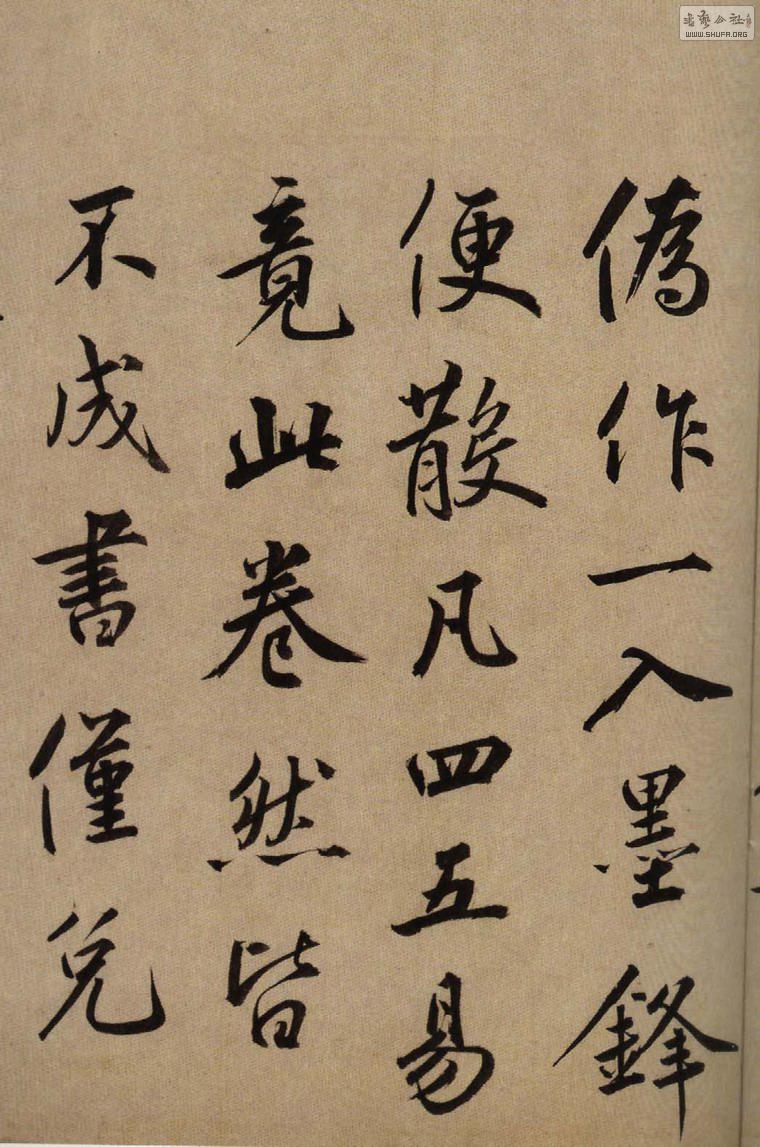 偽作一入墨鋒
便散凡四五易
竟此卷然皆
不成書僅免
書藝公社
WWW.SHUFA.ORG